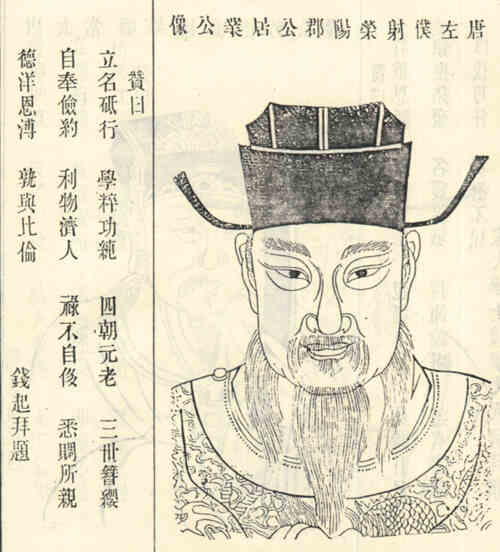 唐左僕射榮陽郡公居業公像
贊曰
立名砥行 學粹功純 四朝元老 三世簪纓
自奉儉約 利物濟人 祿不自侈 悉賙所親
德洋恩溥 孰與比倫 錢起拜題